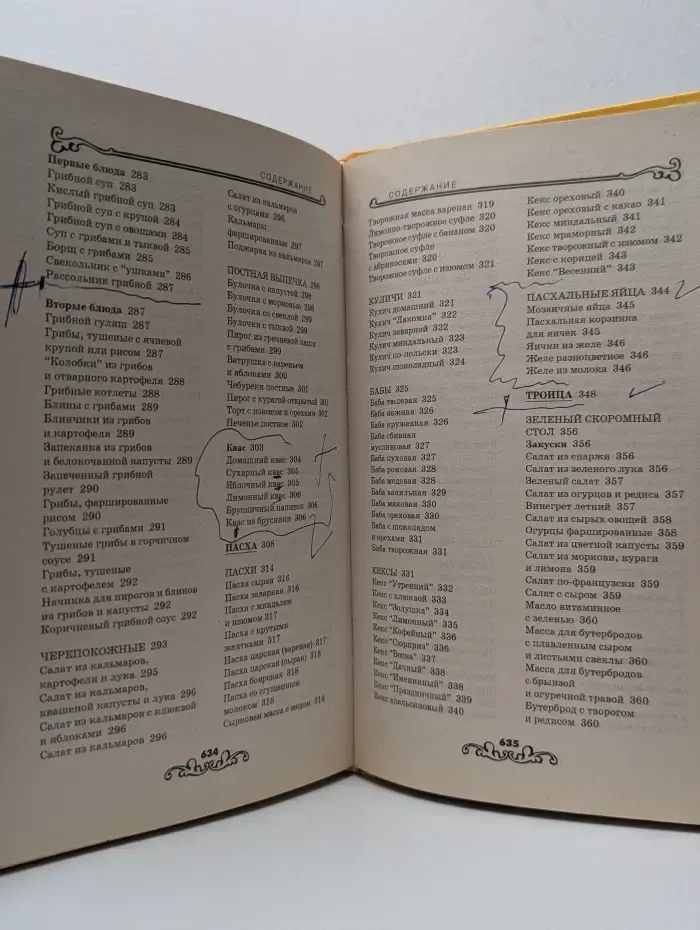 СОДЕРЖАНИЕ
Первые блюда 283
Грибной суп 283
Кислый грибной суп 283
Грибной суп с крупой 284
Грибной суп с овощами 284
Суп с грибами и тыквой 285
Борщ с грибами 285
Свекольник с "ушками" 286
Рассольник грибной 287
Вторые блюда 287
Грибной гуляш 287
Грибы, тушеные с ячневой
крупой или рисом 287
"Колобки" из грибов
и отварного картофеля 288
Грибные котлеты 288
Блины с грибами 288
Блинчики из грибов
и картофеля 289
Запеканка из грибов
и белокочанной капусты 289
Запеченный грибной
рулет 290
Грибы, фаршированные
рисом 290
Голубцы с грибами 291
Тушеные грибы в горчичном
соусе 291
Грибы, тушеные
с картофелем 292
Начинка для пирогов и блинов
из грибов и капусты 292
Коричневый грибной соус 292
ЧЕРЕПОКОЖНЫЕ 293
Салат из кальмаров,
картофеля и лука 295
Салат из кальмаров,
квашеной капусты и лука 296
Салат из кальмаров с клюквой
и яблоками 296
Салат из кальмаров 296
Салат из кальмаров
с огурцами 296
Кальмары
фаршированные 297
Поджарка из кальмаров 297
ПОСТНАЯ ВЫПЕЧКА 298
Булочка с капустой 298
Булочка с морковью 298
Булочка со свеклой 299
Булочка с тыквой 299
Пирог из гречневой каши
с грибами 299
Ватрушка с вареньем
и яблоками 300
Чебуреки постные 301
Пирог с курагой открытый 301
Торт с изюмом и орехами 302
Печенье постное 302
Квас 303
Домашний квас 304
Сухарный квас 305
Яблочный квас 305
Лимонный квас 306
Брусничный напиток 306
Квас из брусники 306
ПАСХА 308
ПАСХИ 314
Пасха сырая 316
Пасха заварная 316
Пасха с миндалем
и изюмом 317
Пасха с крутыми
желтками 317
Пасха царская (вареная) 317
Пасха царская (сырая) 318
Пасха боярская 318
Пасха со сгущенным
молоком 318
Сырковая масса с медом 318
634
СОДЕРЖАНИЕ
Творожная масса вареная 319
Лимонно-творожное суфле 320
Творожное суфле с бананом 320
Творожное суфле
с абрикосами 320
Творожное суфле с изюмом 321
КУЛИЧИ 321
Кулич домашний 321
Кулич "Лакомка" 322
Кулич заварной 322
Кулич миндальный 323
Кулич по-польски 323
Кулич шоколадный 324
БАБЫ 325
Баба тюлевая 325
Баба нежная 326
Баба кружевная 326
Баба сбивная
муслиновая 327
Баба пуховая 327
Баба ромовая 328
Баба медовая 328
Баба ванильная 329
Баба маковая 330
Баба ореховая 330
Баба с шоколадом
и орехами 331
Баба творожная 331
КЕКСЫ 331
Кекс "Утренний" 332
Кекс с клюквой 333
Кекс "Золушка" 334
Кекс "Лимонный" 335
Кекс "Кофейный" 336
Кекс "Сюрприз" 336
Кекс "Весна" 337
Кекс "Дачный" 338
Кекс "Именинный" 338
Кекс "Праздничный" 339
Кекс апельсиновый 340
Кекс ореховый 340
Кекс ореховый с какао 341
Кекс миндальный 341
Кекс мраморный 342
Кекс творожный с изюмом 342
Кекс с корицей 343
Кекс "Весенний" 343
ПАСХАЛЬНЫЕ ЯЙЦА 344
Мозаичные яйца 345
Пасхальная корзинка
для яичек 345
Яички из желе 346
Желе разноцветное 346
Желе из молока 346
ТРОИЦА 348
ЗЕЛЕНЫЙ СКОРОМНЫЙ
СТОЛ 356
Закуски 356
Салат из спаржи 356
Салат из зеленого лука 356
Зеленый салат 357
Салат из огурцов и редиса 357
Винегрет летний 357
Салат из сырых овощей 358
Огурцы фаршированные 358
Салат из цветной капусты 359
Салат из моркови, кураги
и лимона 359
Салат по-французски 359
Салат с сыром 359
Масло витаминное
с зеленью 360
Масса для бутербродов
с плавленным сыром
и листьями свеклы 360
Масса для бутербродов
с брынзой
и огуречной травой 360
Бутерброд с творогом
и редисом 360
635